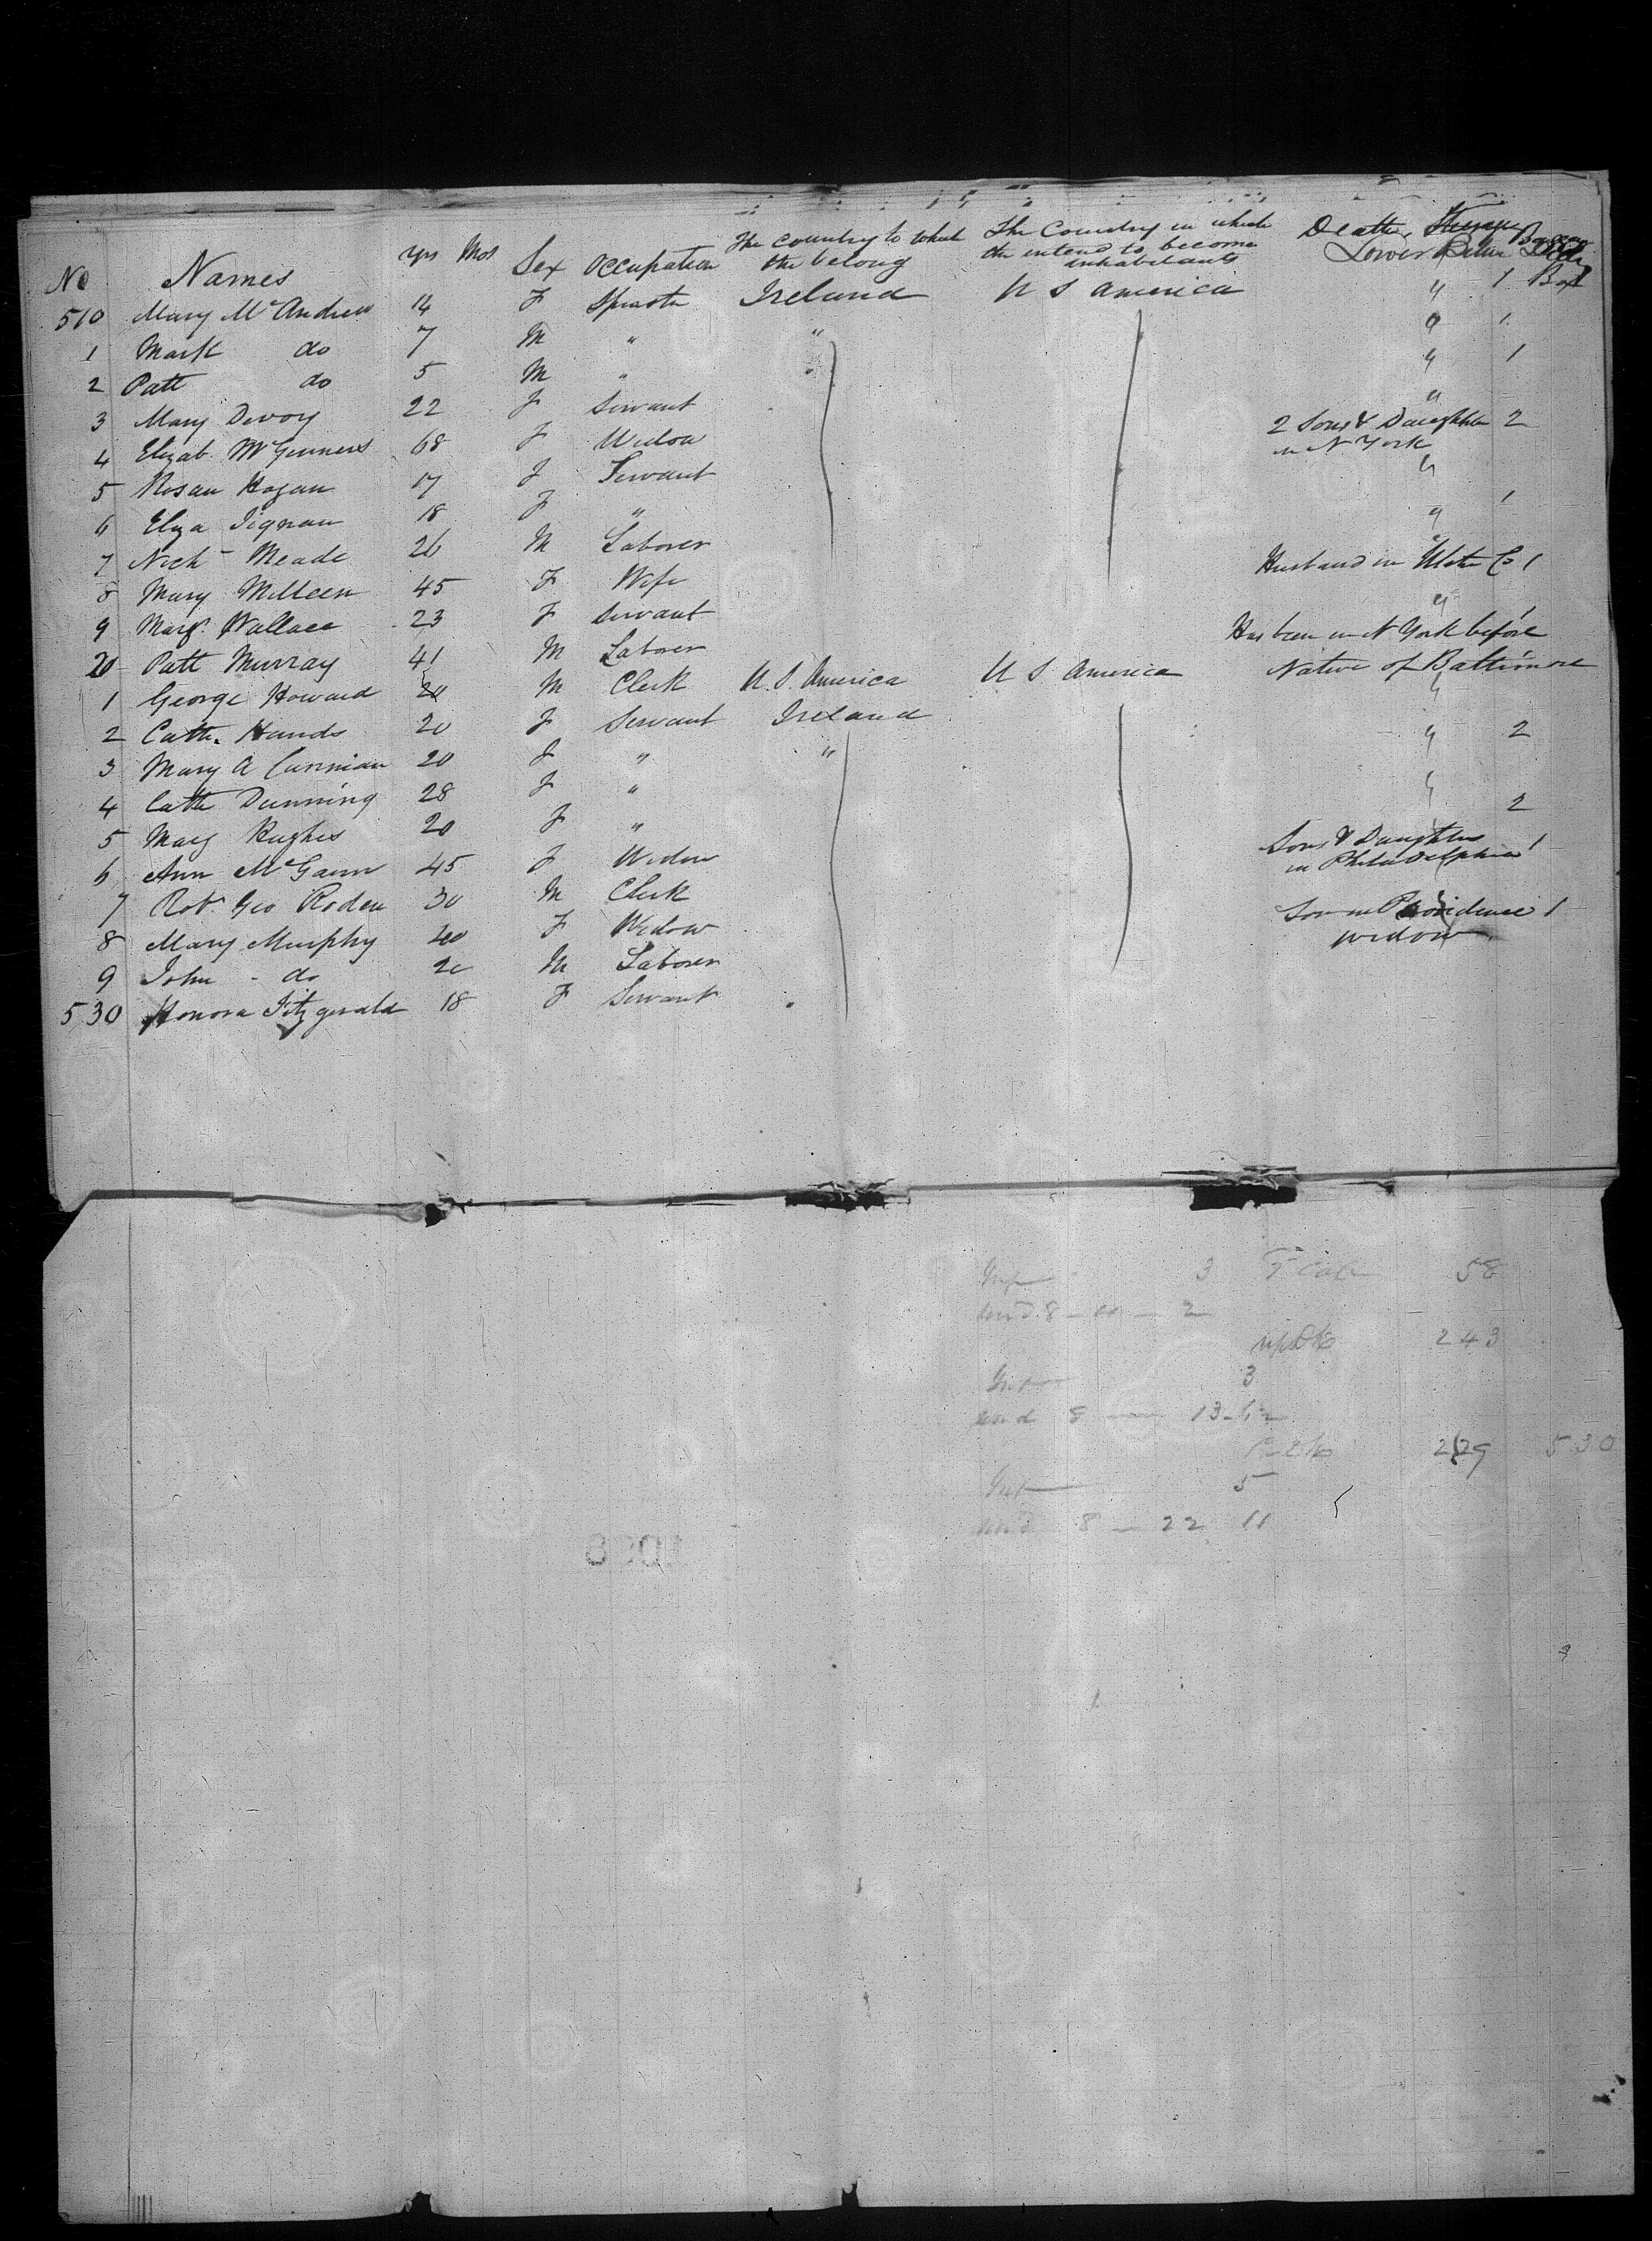 No Names yrs Mos Sex Occupation The Country to which the belong The Country in which the intend to become inhabitants Deaths, Steerage Lower Between Decks
510 Mary McAndrew 14 F Spinster Ireland U S America " 1 Box
1 Mark do 7 M " " " 1
2 Patt do 5 M " " 1
3 Mary Devoy 22 F Servant "
4 Elizab. McGinness 68 F Widow 2 Sons & Daughter in N York 2
5 Rosan Hogan 17 F Servant "
6 Eliza Dignan 18 F " " 1
7 Nich Meade 26 M Laborer "
8 Mary Milleen 45 F Wife Husband in Ulster Co 1
9 Margt. Wallace 23 F Servant " 1
20 Patt Murray 41 M Laborer Has been in N York before
1 George Howard 20 M Clerk U.S. America U S America Native of Baltimore
2 Cath. Hands 20 F Servant Ireland "
3 Mary A Cunnian 20 F " " " 2
4 Cath Dunning 28 F " "
5 Mary Hughes 20 F " 2
6 Ann McGann 45 F Widow Sons & Daughters in Philadelphia 1
7 Robt. Geo Roden 30 M Clerk
8 Mary Murphy 40 F Widow Son in Providence 1
widow
9 John - do 20 M Laborer
530 Honora Fitzgerald 18 F Servant
3 58
und 8 - 2
243
3
und 8 13
229 530
5
und 8 - 22 11